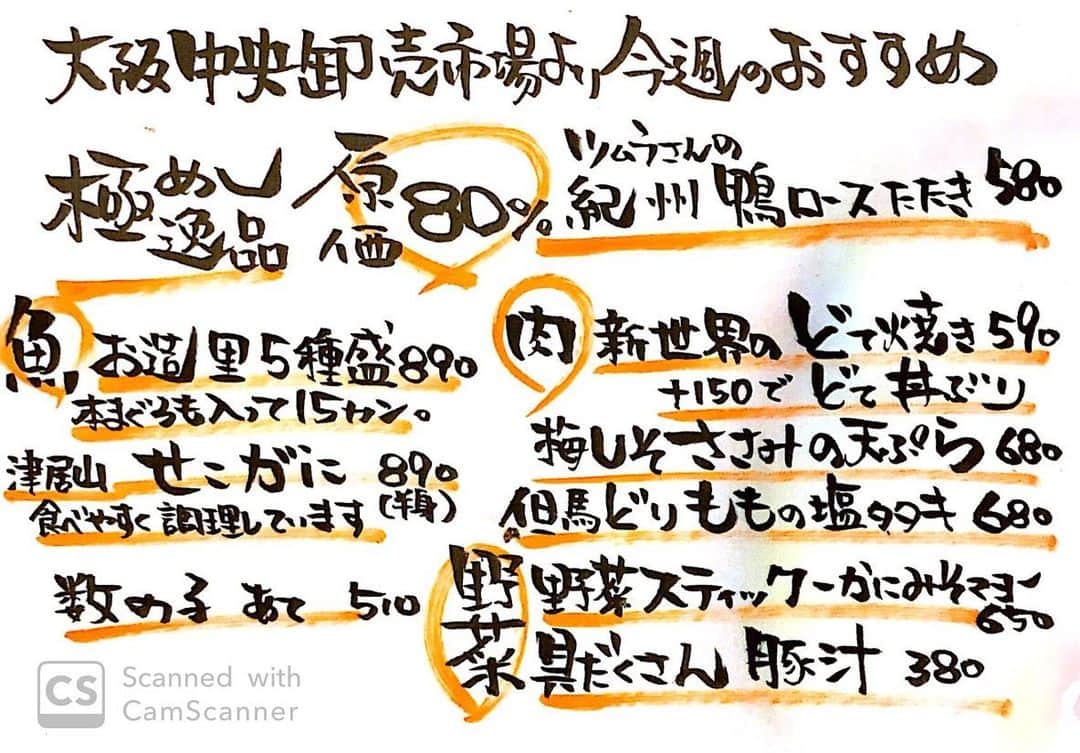 大阪中央卸売市場より今週のおすすめ
極めし逸品 原価80%
ツムラさんの
紀州鴨ロースたたき 580
魚 お造里5種盛 890
本まぐろも入って15カン。
津居山 せこがに 890
(半身)
食べやすく調理しています
数の子 あて 510
肉 新世界のどて焼き 590
+150でどて丼ぶり
梅しそささみの天ぷら 680
但馬どりももの塩タタキ 680
野菜 野菜スティックーかにみそマヨー
650
具だくさん 豚汁 380
CS Scanned with
CamScanner